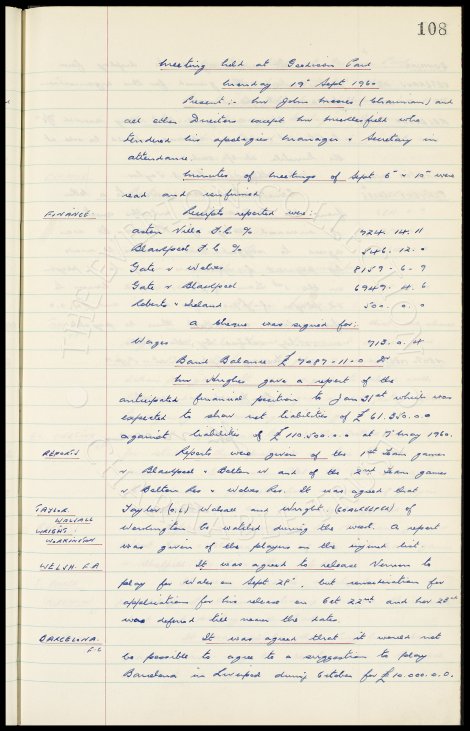 108
Meeting held at Goodison Park
Monday 19th Sept 1960
Present :- Mr John Moores (Chairman) and
all other Directors except Mr Micklesfield who
tendered his apologies Manager & Secretary in
attendance.
Minutes of Meetings of Sept 6th & 10th were
read and confirmed
FINANCE. Receipts reported were :-
Aston Villa F.C. % 724. 14. 11
Blackpool F.C. % 546. 12. 0
Gate v Wolves 8159 - 6 - 9
Gate v Blackpool 6949. 4. 6
Roberts & Ireland 500. 0. 0
A cheque was signed for:
Wages 713. 0. 4
Bank Balance £ 7087-11-0 Dr
Mr Hughes gave a report of the
anticipated financial position to Jan 31st which was
expected to show net liabilities of £ 61.250.00
against liabilities of £ 110.500.0.0 at May 1960.
REPORTS Reports were given of the 1st Team games
v. Blackpool & Bolton W and of the 2nd Team games
v Bolton Res & Wolves Res. It was agreed that
TAYLOR. WALSALL Taylor (O.L) Walsall and Wright. (GOALKEEPER) of
WRIGHT. WARRINGTON Warrington be watched during the week. A report
was given of the players on the injured list.
WELSH. F.A It was agreed to release Vernon to
play for Wales on Sept 28th, but consideration for
application for his release on Oct 22nd and Nov
was deferred till nearer the dates.
BARCELONA. F.C It was agreed that it would not
be possible to agree to a suggestion to play
Barcelona in Liverpool during October for £10.000.0.0.